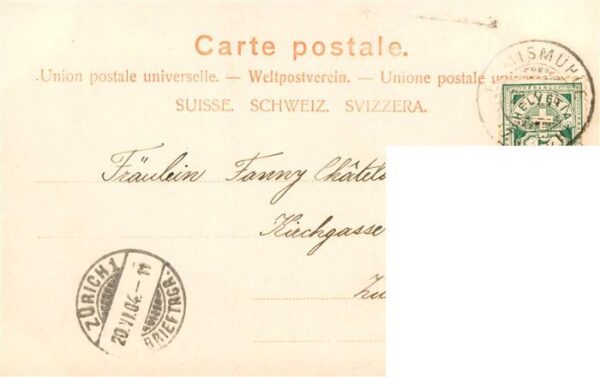 Carte postale.
Union postale universelle. — Weltpostverein. — Unione postale
SUISSE. SCHWEIZ. SVIZZERA.
HELVETIA
Fräulein Fanny
Kirchgasse
ZÜRICH 1
20.VI.04. - 11
BRIEFTRGR.